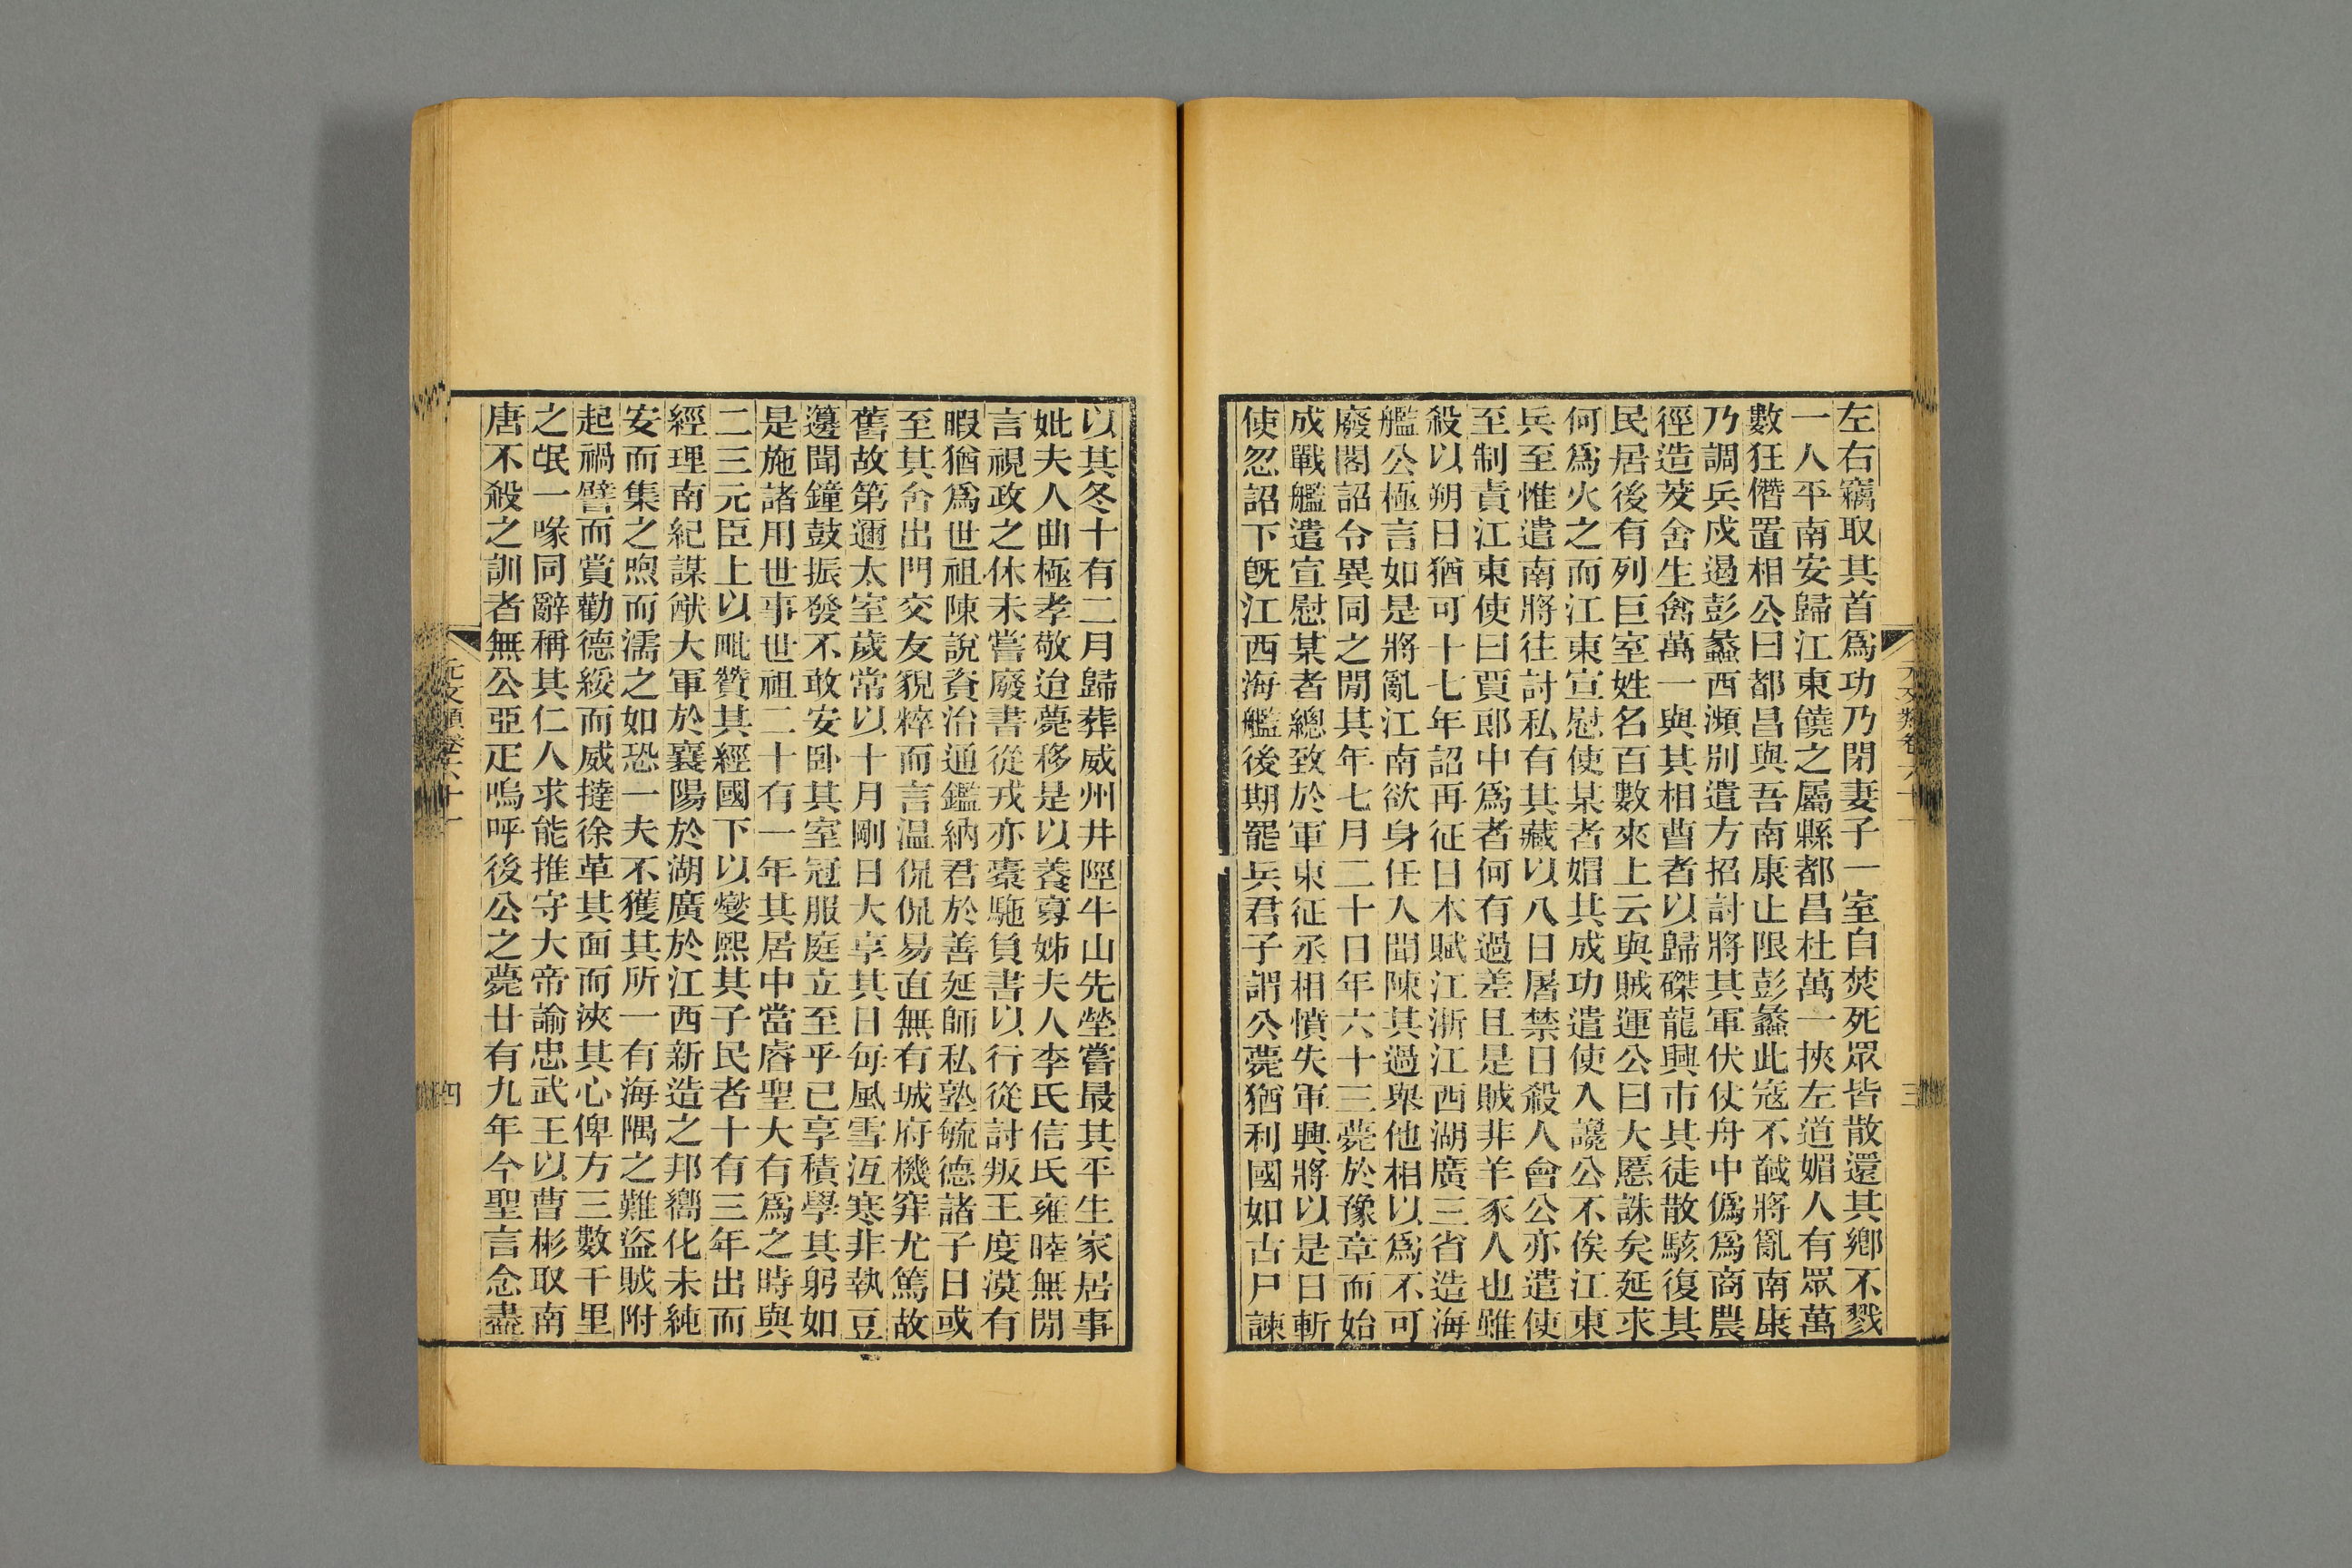 左右竊取其首爲功乃閉妻子一室自焚死眾皆散還其鄉不戮
一人平南安歸江東饒之屬縣都昌杜萬一挾左道媚人有眾萬
數狂僭置相公曰都昌與吾南康止限彭蠡此寇不馘將亂南康
乃調兵戍遏彭蠡西瀕別遣方招討將其軍伏仗舟中僞爲商農
徑造茇舍生禽萬一與其相曹者以歸磔龍興市其徒散駭復其
民居後有列巨室姓名百數來上云與賊運公曰大慝誅矣延求
何爲火之而江東宣慰使某者媢其成功遣使入讒公不俟江東
兵至惟遣南將往討私有其藏以八日屠禁日殺人會公亦遣使
至制責江東使曰賈郎中爲者何有過差且是賊非羊豕人也雖
殺以朔日猶可十七年詔再征日本賦江浙江西湖廣三省造海
艦公極言如是將亂江南欲身任入聞陳其過舉他相以爲不可
廢閣詔令異同之閒其年七月二十日年六十三薨於豫章而始
成戰艦遣宣慰某者總致於軍東征丞相憤失軍興將以是日斬
使忽詔下旣江西海艦後期罷兵君子謂公薨猶利國如古尸諫
元文類卷六十一
三
以其冬十有二月歸葬威州井陘牛山先塋嘗最其平生家居事
妣夫人曲極孝敬迨薨移是以養寡姊夫人李氏信氏雍睦無閒
言視政之休未嘗廢書從戎亦橐駞負書以行從討叛王度漠有
暇猶爲世祖陳說資治通鑑納君於善延師私塾毓德諸子日或
至其舍出門交友貌粹而言温侃侃易直無有城府機穽尤篤故
舊故第邇太室歲常以十月剛日大享其日每風雪沍寒非執豆
籩聞鐘鼓振發不敢安卧其室冠服庭立至乎已享積學其躬如
是施諸用世事世祖二十有一年其居中當睿聖大有爲之時與
二三元臣上以毗贊其經國下以燮熙其子民者十有三年出而
經理南紀謀猷大軍於襄陽於湖廣於江西新造之邦嚮化未純
安而集之煦而濡之如恐一夫不獲其所一有海隅之難盜賊附
起禍譬而賞勸德綏而威撻徐革其面而浹其心俾方三數千里
之氓一喙同辭稱其仁人求能推守大帝諭忠武王以曹彬取南
唐不殺之訓者無公亞疋嗚呼後公之薨廿有九年今聖言念盡
元文類卷六十一
四